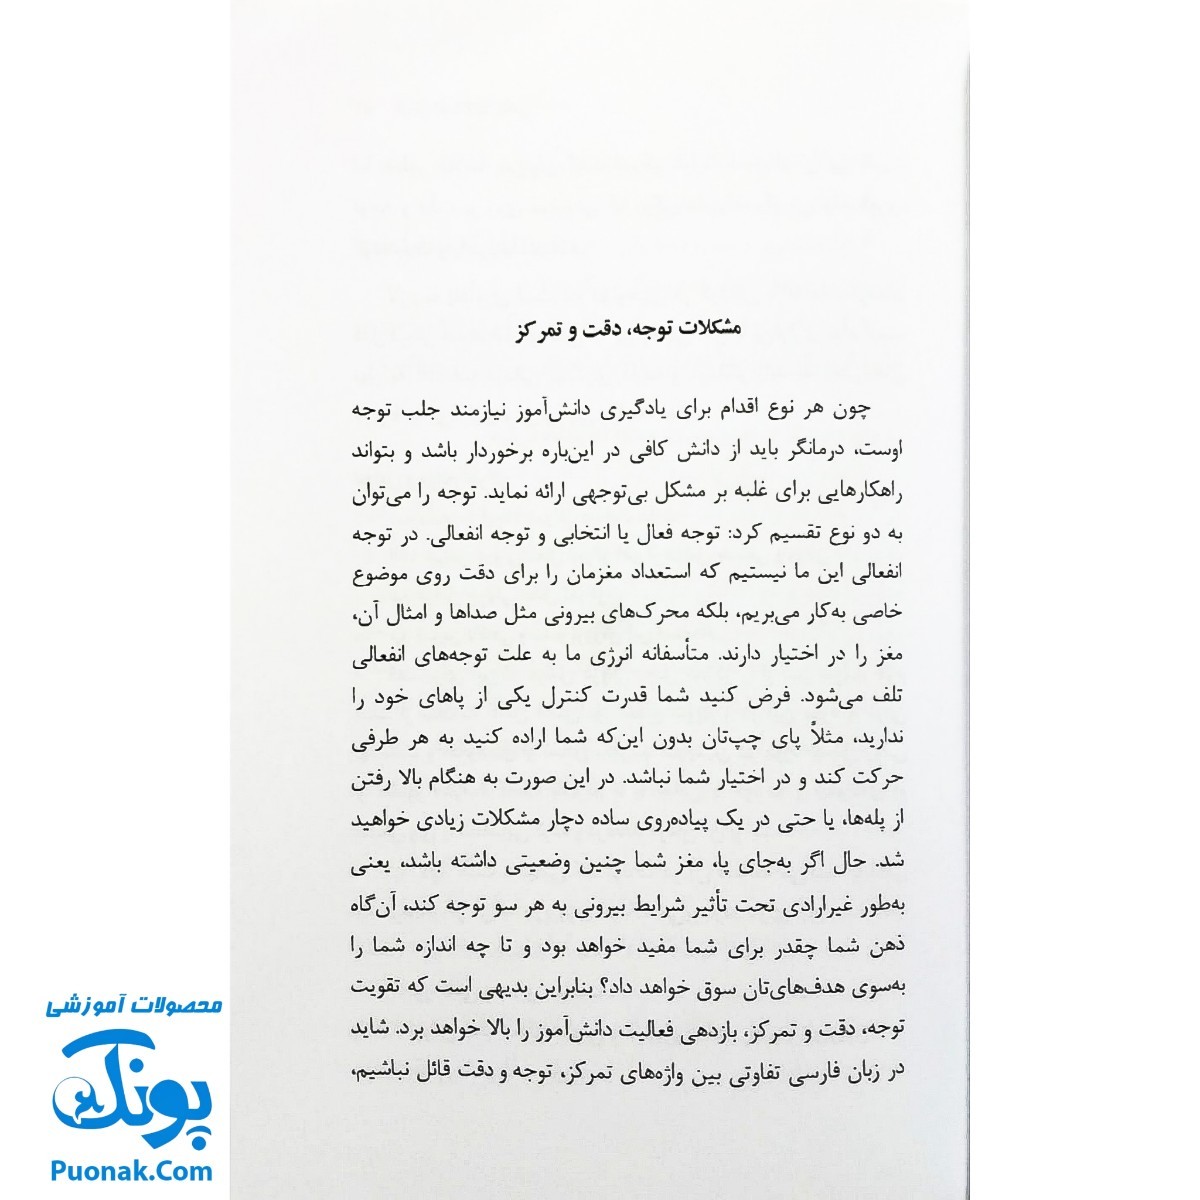 مشکلات توجه، دقت و تمرکز
چون هر نوع اقدام برای یادگیری دانش‌آموز نیازمند جلب توجه
اوست، درمانگر باید از دانش کافی در این‌باره برخوردار باشد و بتواند
راهکارهایی برای غلبه بر مشکل بی‌توجهی ارائه نماید. توجه را می‌توان
به دو نوع تقسیم کرد: توجه فعال یا انتخابی و توجه انفعالی. در توجه
انفعالی این ما نیستیم که استعداد مغزمان را برای دقت روی موضوع
خاصی به‌کار می‌بریم، بلکه محرک‌های بیرونی مثل صداها و امثال آن،
مغز را در اختیار دارند. متأسفانه انرژی ما به علت توجه‌های انفعالی
تلف می‌شود. فرض کنید شما قدرت کنترل یکی از پاهای خود را
ندارید، مثلاً پای چپ‌تان بدون این‌که شما اراده کنید به هر طرفی
حرکت کند و در اختیار شما نباشد. در این صورت به هنگام بالا رفتن
از پله‌ها، یا حتی در یک پیاده‌روی ساده دچار مشکلات زیادی خواهید
شد. حال اگر به‌جای پا، مغز شما چنین وضعیتی داشته باشد، یعنی
به‌طور غیرارادی تحت تأثیر شرایط بیرونی به هر سو توجه کند، آن‌گاه
ذهن شما چقدر برای شما مفید خواهد بود و تا چه اندازه شما را
به‌سوی هدف‌های‌تان سوق خواهد داد؟ بنابراین بدیهی است که تقویت
توجه، دقت و تمرکز، بازدهی فعالیت دانش‌آموز را بالا خواهد برد. شاید
در زبان فارسی تفاوتی بین واژه‌های تمرکز، توجه و دقت قائل نباشیم،
محصولات آموزشی
پونک
Puonak.Com